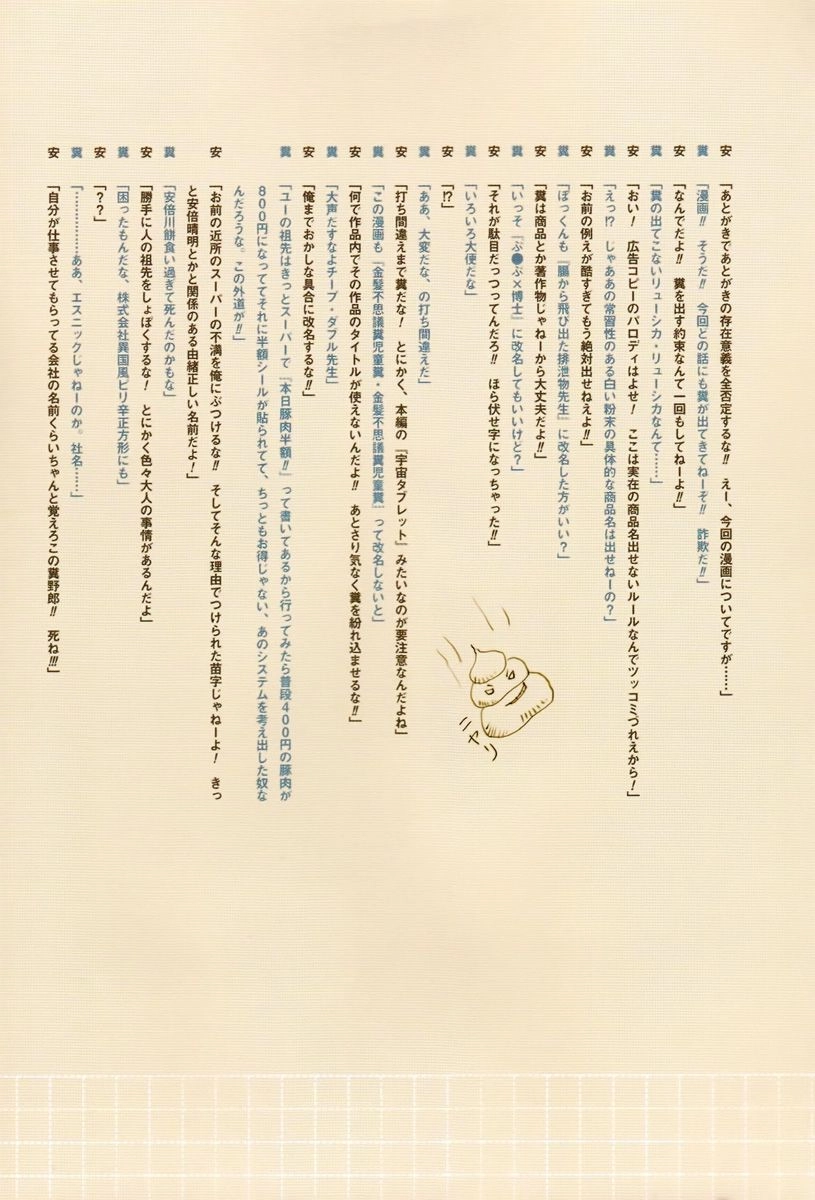 安 「あとがきであとがきの存在意義を全否定するな!! えー、今回の漫画についてですが……」
糞 「漫画!! そうだ!! 今回どの話にも糞が出てきてねーぞ!! 詐欺だ!!」
安 「なんでだよ!! 糞を出す約束なんて一回もしてねーよ!!」
糞 「糞の出てこないリューシカ・リューシカなんて……」
安 「おい! 広告コピーのパロディはよせ! ここは実在の商品名出せないルールなんでツッコミづれえから!」
糞 「えっ!? じゃああの常習性のある白い粉末の具体的な商品名は出せねーの?」
安 「お前の例えが酷すぎてもう絶対出せねえよ!!」
糞 「ぼっくんも『腸から飛び出た排泄物先生』に改名した方がいい?」
安 「糞は商品とか著作物じゃねーから大丈夫だよ!!」
糞 「いっそ『ぷ●ぷ×博士』に改名してもいいけど?」
安 「それが駄目だっつってんだろ!! ほら伏せ字になっちゃった!!」
糞 「いろいろ大便だな」
安 「!?」
糞 「ああ、大変だな、の打ち間違えだ」
安 「打ち間違えまで糞だな! とにかく、本編の『宇宙タブレット』みたいなのが要注意なんだよね」
糞 「この漫画も『金髪不思議糞児童糞・金髪不思議糞児童糞』って改名しないと」
安 「何で作品内でその作品のタイトルが使えないんだよ!! あとさり気なく糞を紛れ込ませるな!!」
糞 「大声だすなよチープ・ダブル先生」
安 「俺までおかしな具合に改名するな!!」
糞 「ユーの祖先はきっとスーパーで『本日豚肉半額!!』って書いてあるから行ってみたら普段400円の豚肉が
800円になっててそれに半額シールが貼られてて、ちっともお得じゃない、あのシステムを考え出した奴な
んだろうな。この外道が!!」
安 「お前の近所のスーパーの不満を俺にぶつけるな!! そしてそんな理由でつけられた苗字じゃねーよ! きっ
と安倍晴明とかと関係のある由緒正しい名前だよ!」
糞 「安倍川餅食い過ぎて死んだのかもな」
安 「勝手に人の祖先をしょぼくするな! とにかく色々大人の事情があるんだよ」
糞 「困ったもんだな、株式会社異国風ピリ辛正方形にも」
安 「??」
糞 「……………ああ、エスニックじゃねーのか。社名……」
安 「自分が仕事させてもらってる会社の名前くらいちゃんと覚えろこの糞野郎!! 死ね!!!」
ニヤリ